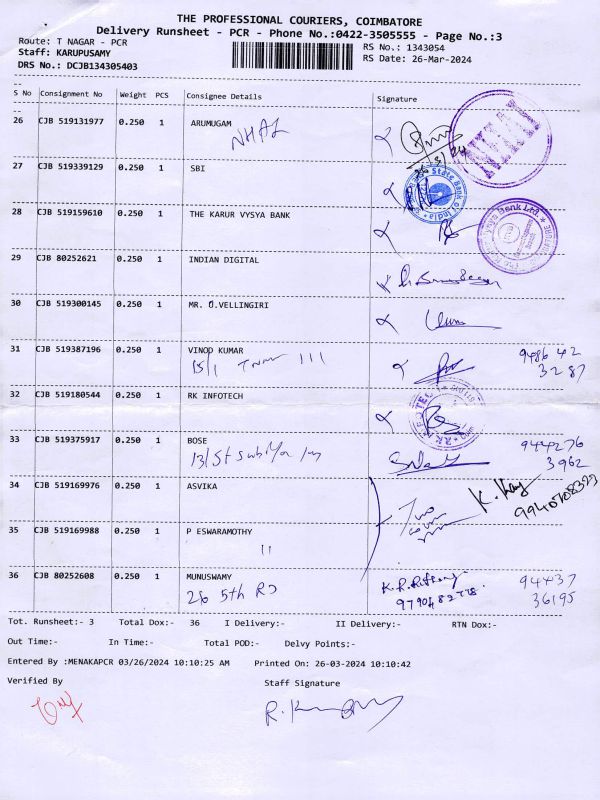 THE PROFESSIONAL COURIERS, COIMBATORE
Delivery Runsheet - PCR - Phone No.:0422-3505555 - Page No.:3
Route: T NAGAR - PCR
RS No.: 1343054
Staff: KARUPUSAMY
RS Date: 26-Mar-2024
DRS No.: DCJB134305403
S No Consignment No Weight PCS Consignee Details Signature
26 CJB 519131977 0.250 1 ARUMUGAM
NHAI
27 CJB 519339129 0.250 1 SBI
State Bank of India
28 CJB 519159610 0.250 1 THE KARUR VYSYA BANK
Vysya Bank Ltd.
29 CJB 80252621 0.250 1 INDIAN DIGITAL
30 CJB 519300145 0.250 1 MR. O.VELLINGIRI
31 CJB 519387196 0.250 1 VINOD KUMAR
15/1 111
9486 42
3287
32 CJB 519180544 0.250 1 RK INFOTECH
33 CJB 519375917 0.250 1 BOSE
13/5t
944276
3962
34 CJB 519169976 0.250 1 ASVIKA
35 CJB 519169988 0.250 1 P ESWARAMOTHY
11
36 CJB 80252608 0.250 1 MUNUSWAMY
216 5th RD
94437
36195
Tot. Runsheet:- 3 Total Dox:- 36 I Delivery:- II Delivery:- RTN Dox:-
Out Time:- In Time:- Total POD:- Delvy Points:-
Entered By :MENAKAPCR 03/26/2024 10:10:25 AM Printed On: 26-03-2024 10:10:42
Verified By Staff Signature